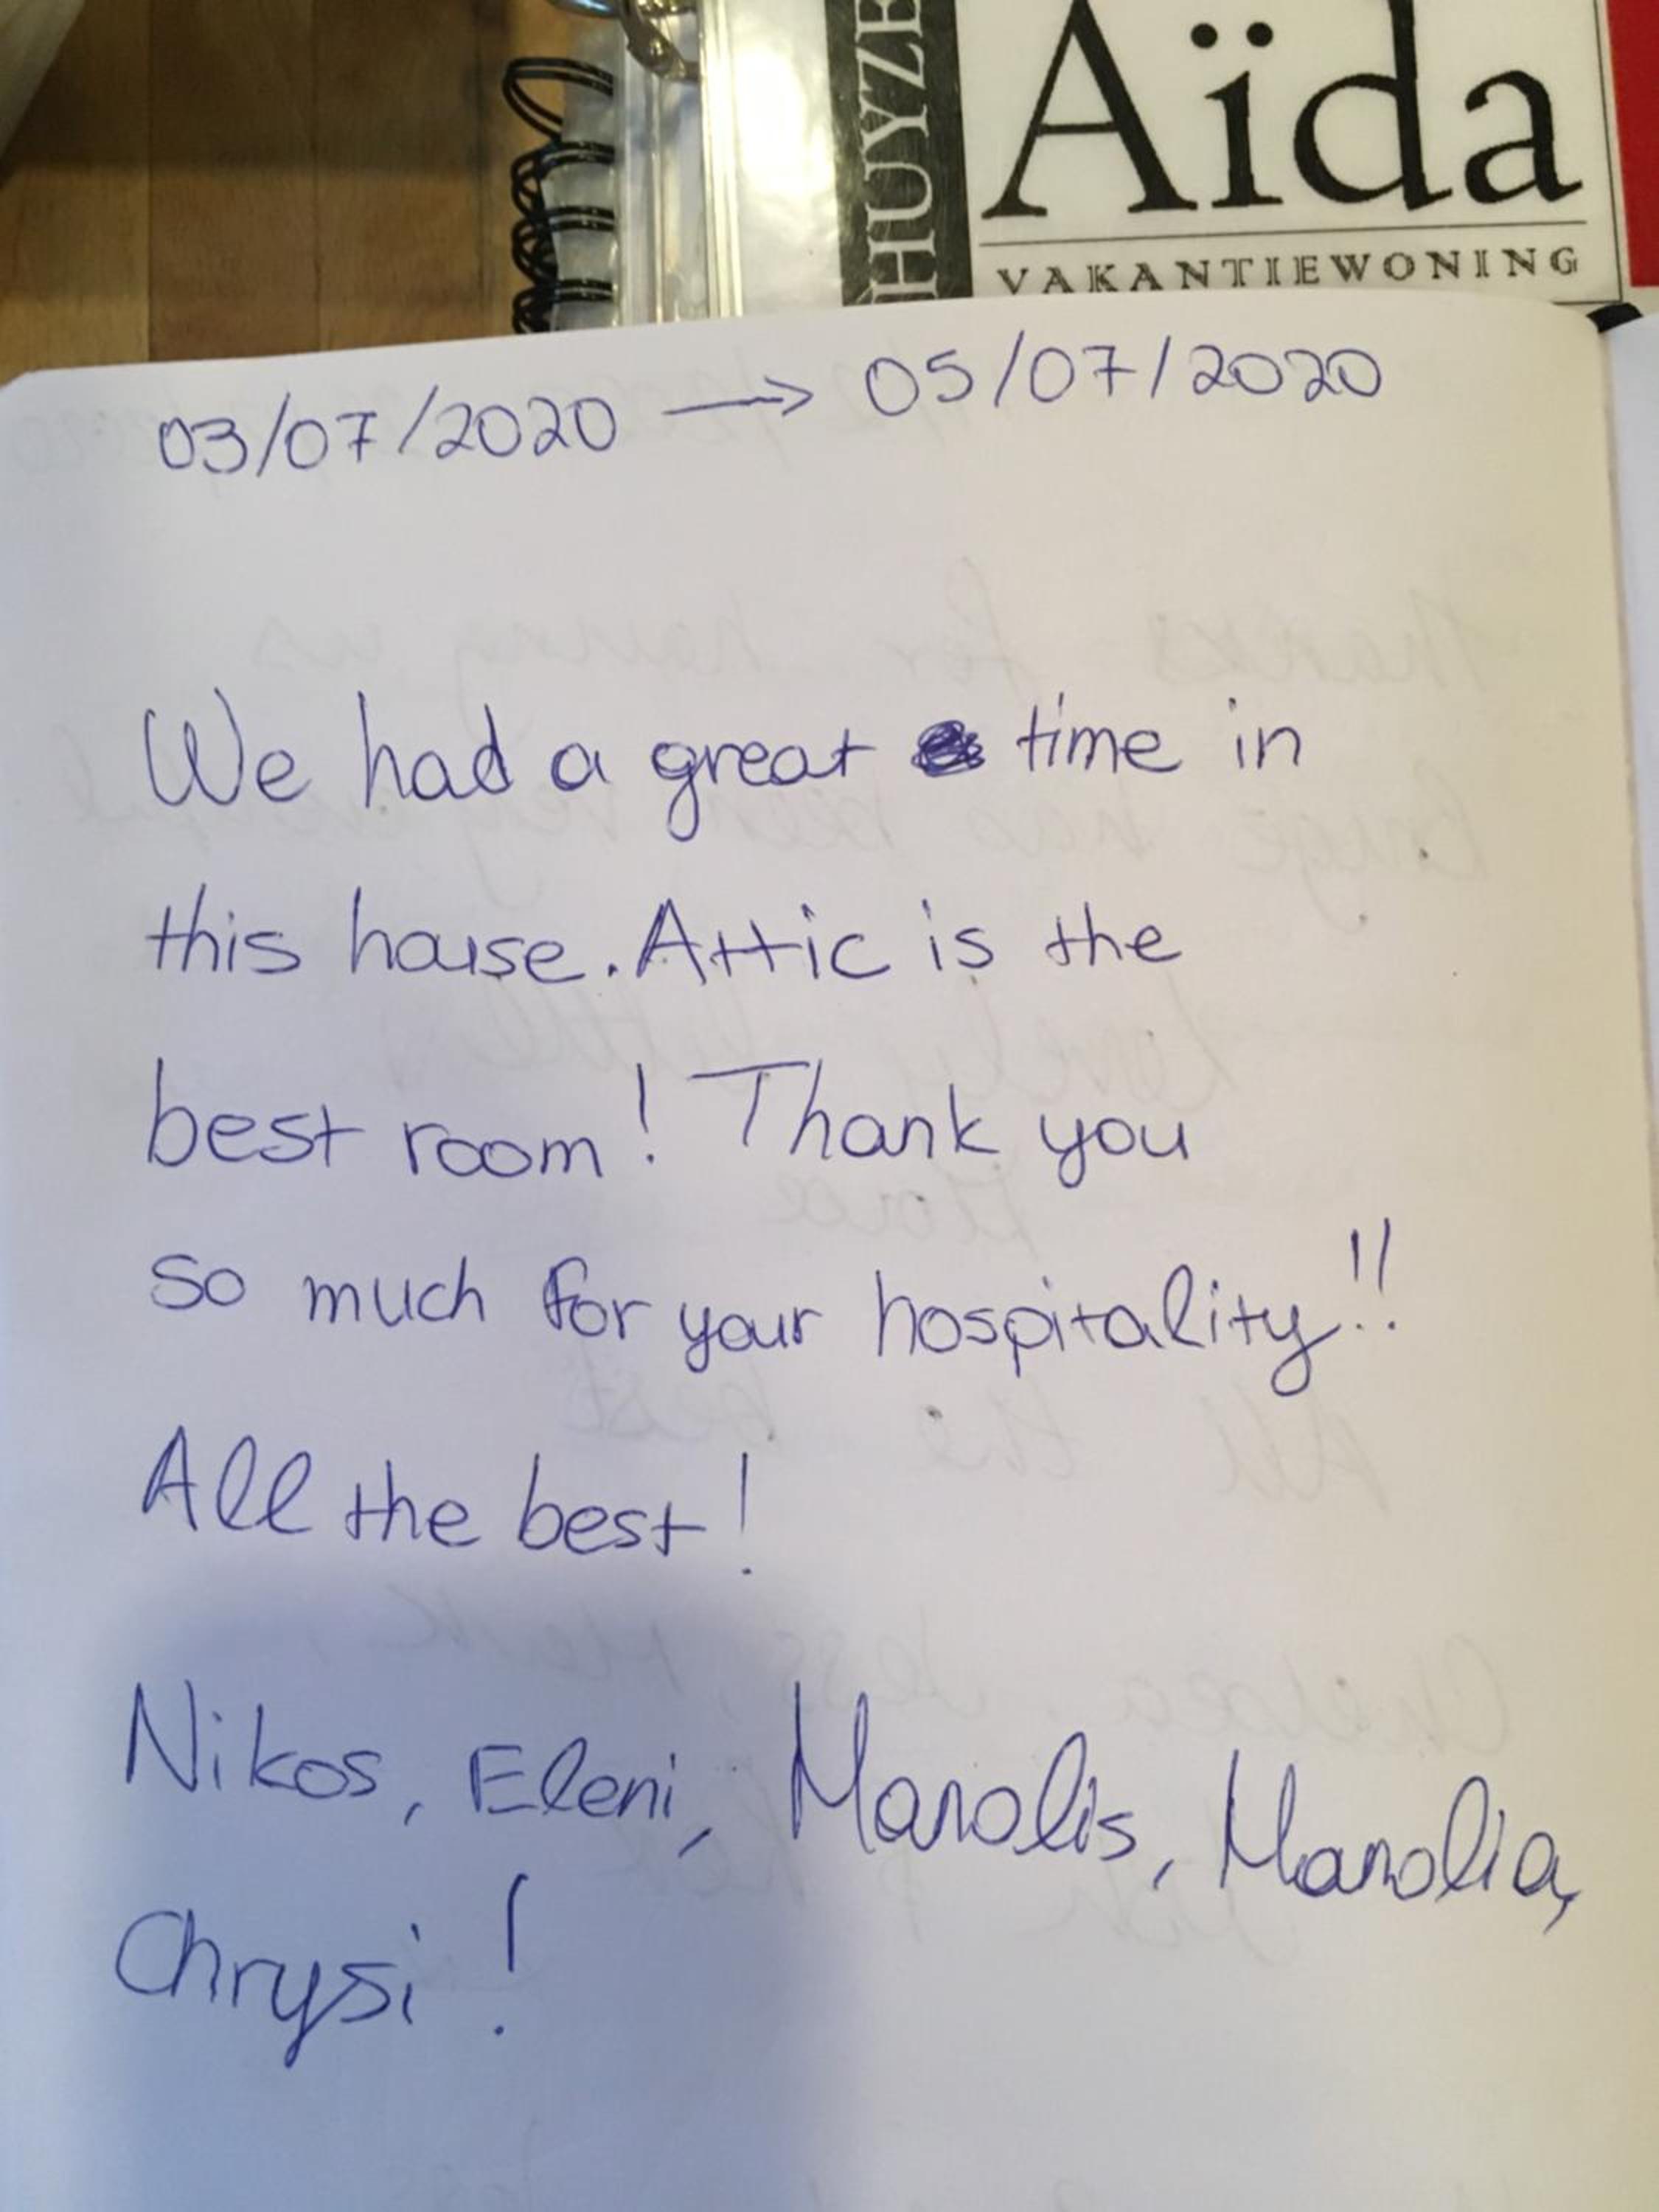 HUYZE
Aïda
VAKANTIEWONING
03/07/2020 → 05/07/2020
We had a great time in
this house. Attic is the
best room! Thank you
so much for your hospitality!!
All the best!
Nikos, Eleni, Manolis, Manolia,
Chrysi!